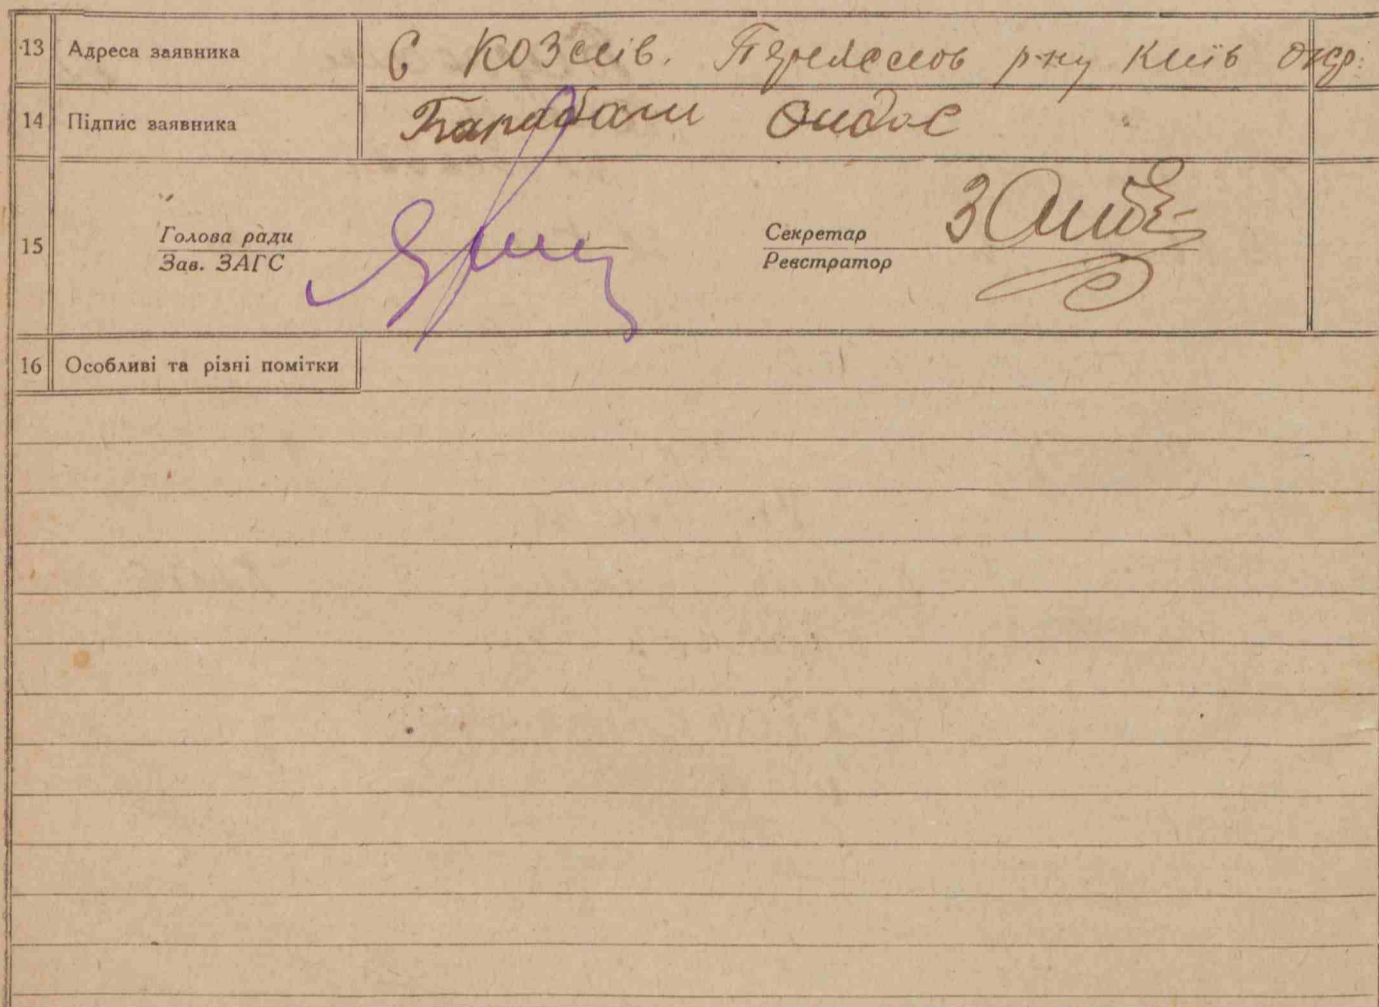 13 Адреса заявника С Козлів. Переяслов р-ну Київ окр.
14 Підпис заявника Барабаш
15 Голова ради Секретар
Зав. ЗАГС Реєстратор
16 Особливі та різні помітки